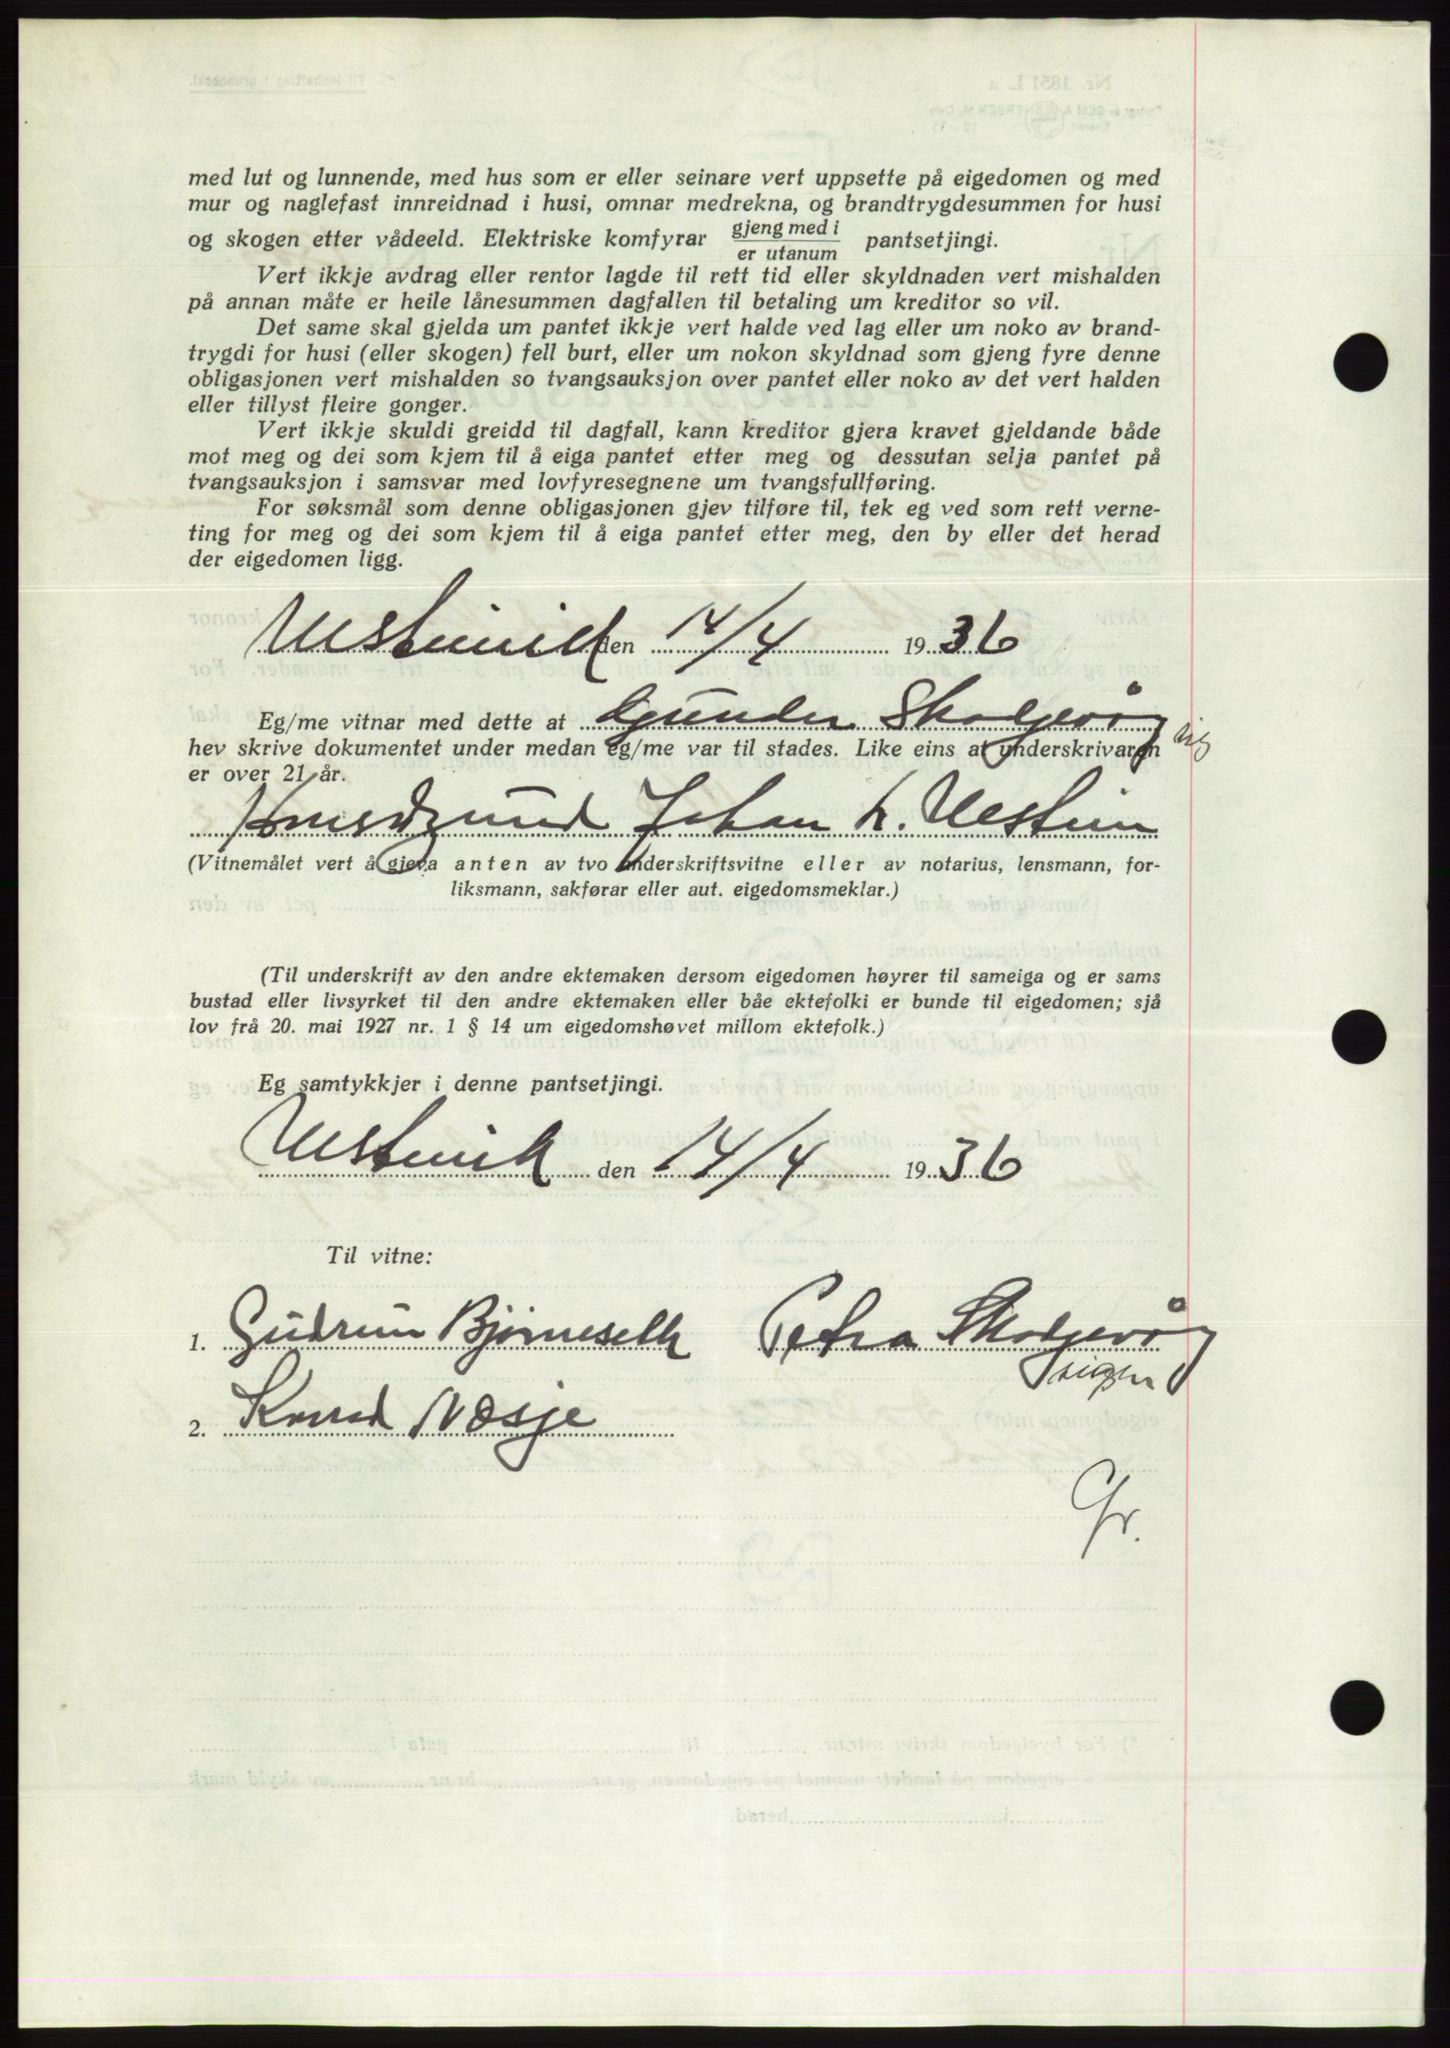 med lut og lunnende, med hus som er eller seinare vert uppsette på eigedomen og med
mur og naglefast innreidnad i husi, omnar medrekna, og brandtrygdesummen for husi
og skogen etter vådeeld. Elektriske komfyrar gjeng med i / er utanum pantsetjingi.
Vert ikkje avdrag eller rentor lagde til rett tid eller skyldnaden vert mishalden
på annan måte er heile lånesummen dagfallen til betaling um kreditor so vil.
Det same skal gjelda um pantet ikkje vert halde ved lag eller um noko av brand-
trygdi for husi (eller skogen) fell burt, eller um nokon skyldnad som gjeng fyre denne
obligasjonen vert mishalden so tvangsauksjon over pantet eller noko av det vert halden
eller tillyst fleire gonger.
Vert ikkje skuldi greidd til dagfall, kann kreditor gjera kravet gjeldande både
mot meg og dei som kjem til å eiga pantet etter meg og dessutan selja pantet på
tvangsauksjon i samsvar med lovfyresegnene um tvangsfullføring.
For søksmål som denne obligasjonen gjev tilføre til, tek eg ved som rett verne-
ting for meg og dei som kjem til å eiga pantet etter meg, den by eller det herad
der eigedomen ligg.
den 14/4 1936
Eg/me vitnar med dette at Gunder Skolgevåg sig
hev skrive dokumentet under medan eg/me var til stades. Like eins at underskrivaren
er over 21 år.
Johan L.
(Vitnemålet vert å gjeva anten av tvo underskriftsvitne eller av notarius, lensmann, for-
liksmann, sakførar eller aut. eigedomsmeklar.)
(Til underskrift av den andre ektemaken dersom eigedomen høyrer til sameiga og er sams
bustad eller livsyrket til den andre ektemaken eller båe ektefolki er bunde til eigedomen; sjå
lov frå 20. mai 1927 nr. 1 § 14 um eigedomshøvet millom ektefolk.)
Eg samtykkjer i denne pantsetjingi.
den 14/4 1936
Til vitne:
1. Gudrun Bjørneseth Petra Skolgevåg
2. Konrad Nosje
Gr.